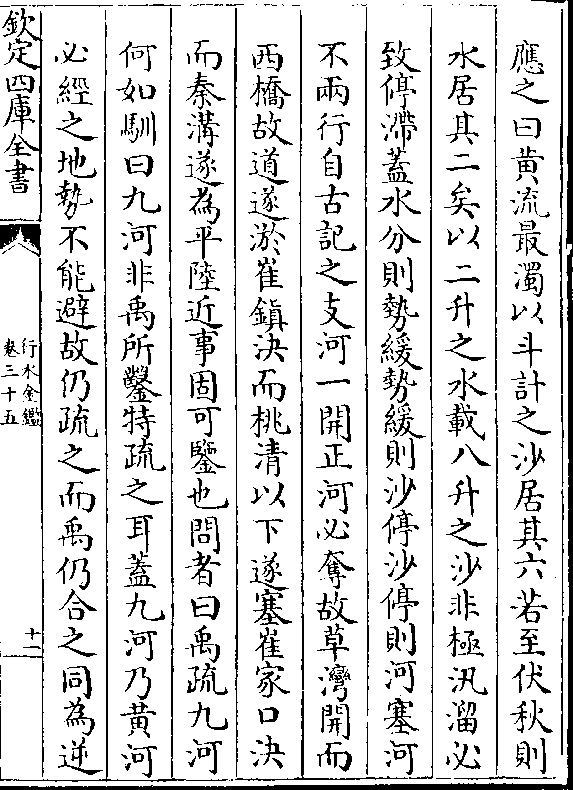 應之曰黄流最濁以斗計之沙居其六若至伏秋則
水居其二矣以二升之水載八升之沙非極汛溜必
致停滯蓋水分則勢緩勢緩則沙停沙停則河塞河
不兩行自古記之支河一開正河必奪故草灣開而
西橋故道遂淤崔鎮決而桃清以下遂塞崔家口決
而秦溝遂為平陸近事固可鑒也問者曰禹疏九河
何如馴曰九河非禹所鑿特疏之耳蓋九河乃黄河
必經之地勢不能避故仍疏之而禹仍合之同為逆
欽定四庫全書
行水金鑑
卷三十五
十一